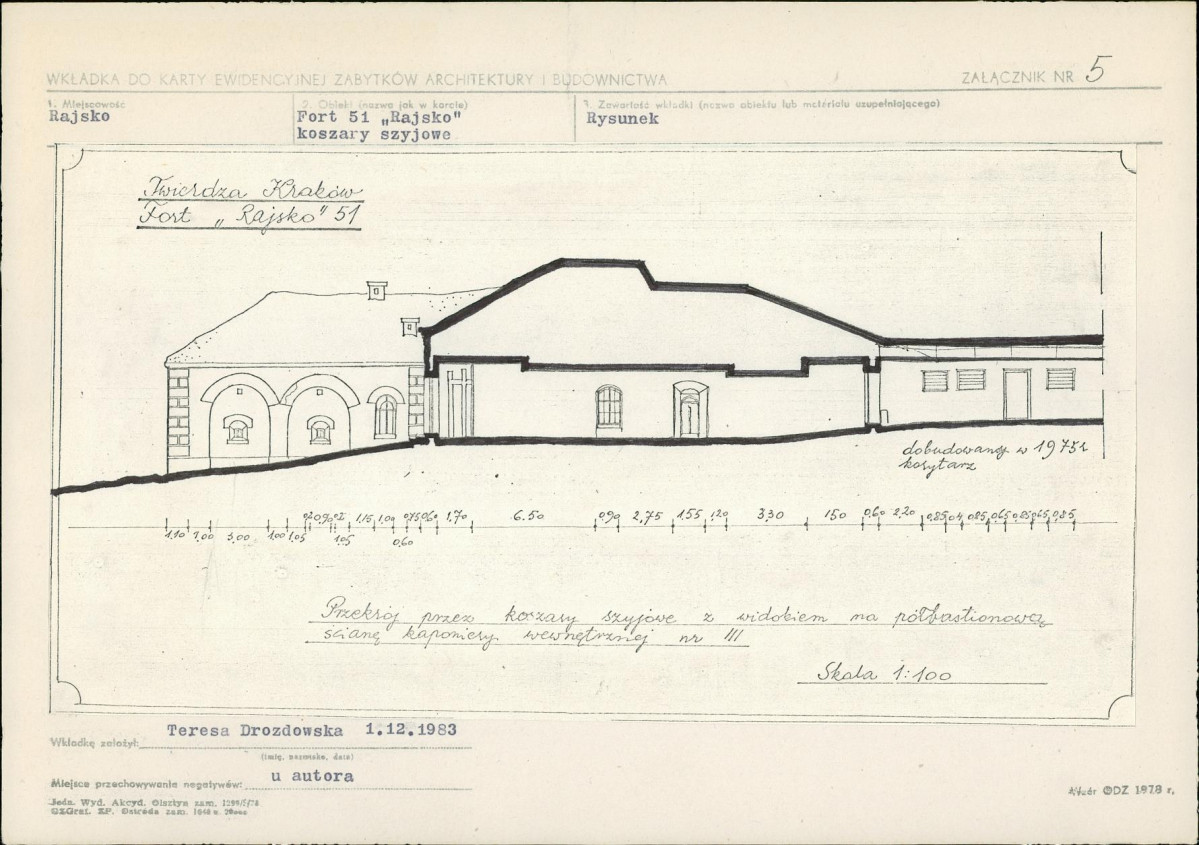 WKŁADKA DO KARTY EWIDENCYJNEJ ZABYTKÓW ARCHITEKTURY I BUDOWNICTWA
ZAŁĄCZNIK NR 5
1. Miejscowość
Rajsko
2. Obiekt (nazwa jak w karcie)
Fort 51 „Rajsko"
koszary szyjowe
3. Zawartość wkładki (nazwa obiektu lub materiału uzupełniającego)
Rysunek
Twierdza Kraków
Fort „Rajsko" 51
dobudowany w 1975r
korytarz
1,15 1,00 0,75 0,60 1,70 6.50 0,90 2,75 1.55 1,20 3,30 150 0,60 2,20 0,85 0,4 0,85 0,65 0,85 0,65 0,85
1,10 1,00 3,00 1,00 1,05 1,05 0,60
Przekrój przez koszary szyjowe z widokiem na półbastionową
ścianę kaponiery wewnętrznej nr III
Skala 1:100
Wkładkę założył: Teresa Drozdowska 1.12.1983
(imię, nazwisko, data)
Miejsce przechowywania negatywów: u autora
Jedn. Wyd. Akcyd. Olsztyn zam.
OZGraf. ZP. Ostróda zam.
Wzór ODZ 1978 r.